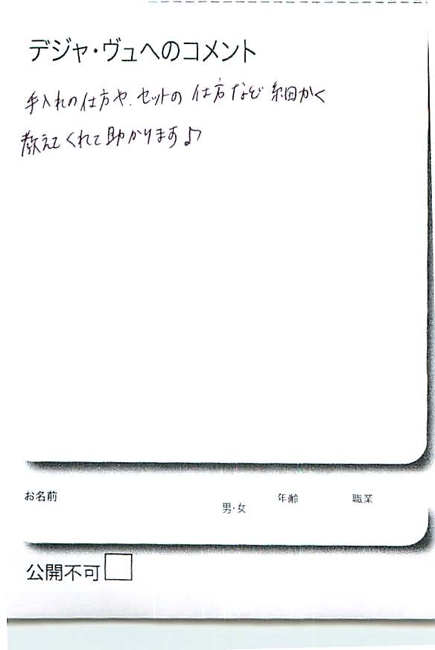 デジャ・ヴュへのコメント
手入れの仕方や、セットの仕方など細かく
教えてくれて助かります♪
お名前
男・女
年齢
職業
公開不可